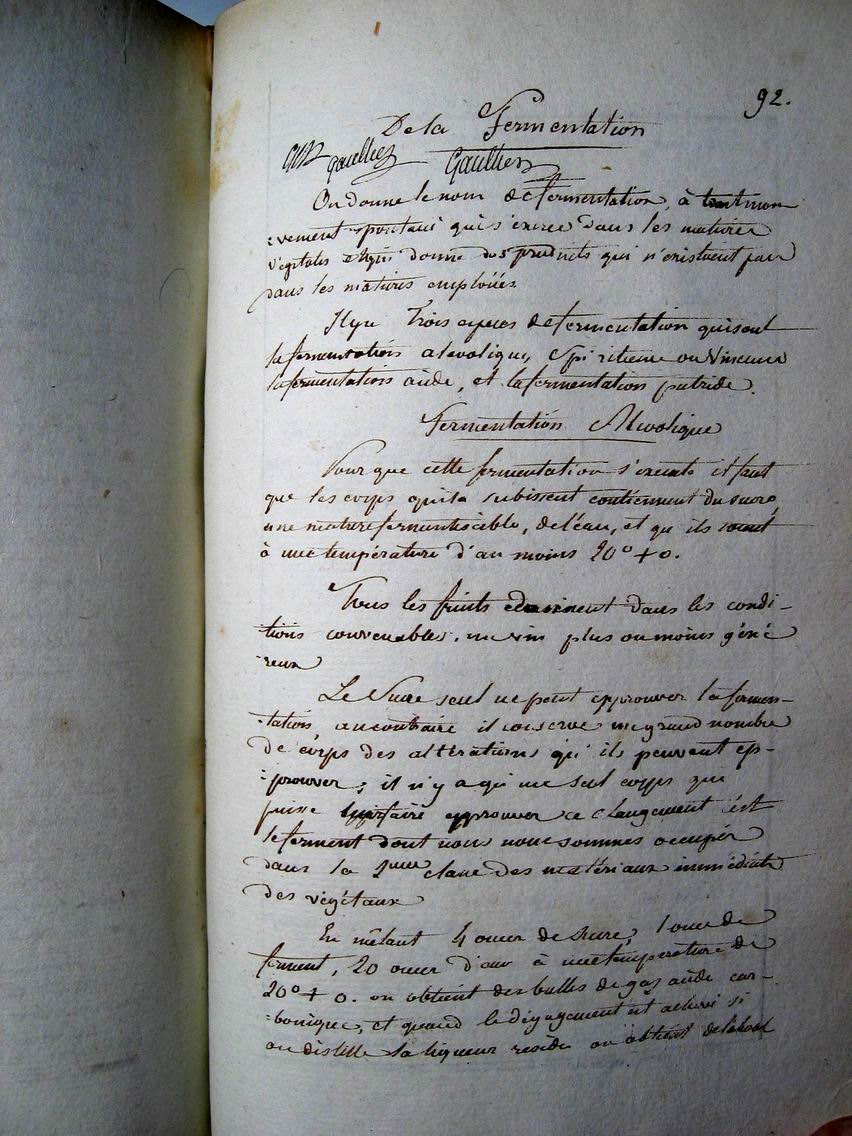 92.
De la Fermentation
Gaultier Gaultier
On donne le nom de fermentation, à tout mou
-vement spontané qui s'exerce dans les matieres
végétales et qui donne des produits qui n'existaient pas
dans les matieres emploiées
Il y a Trois especes de fermentation qui sont
la fermentation alcoolique, Spiritueuse ou Vineuse
la fermentation acide, et la fermentation putride.
Fermentation Alcoolique
Pour que cette fermentation s'execute il faut
que les corps qui la subissent contiennent du sucre,
une matiere fermentiscible, de l'eau, et qu ils soient
à une température d'au moins 20° + 0.
Tous les fruits donnent dans les condi-
-tions convenables, un vin plus ou moins géné
-reux
Le Sucre seul ne peut epprouver la fermen-
-tation, au contraire il conserve un grand nombre
de corps des altérations qu'ils peuvent ep-
-prouver; il n'y a qu'un seul corps qui
puisse lui faire epprouver ce changement c'est
le ferment dont nous nous sommes occupés
dans la 2eme classe des matériaux immédiats
des végétaux
En mêlant 4 onces de Sucre, 1 once de
ferment, 20 onces d'eau à une température de
20° + 0. on obtient des bulles de gaz acide car-
-bonique, et quand le dégagement est achevé si
on distille la liqueur residu on obtient de l'alcool